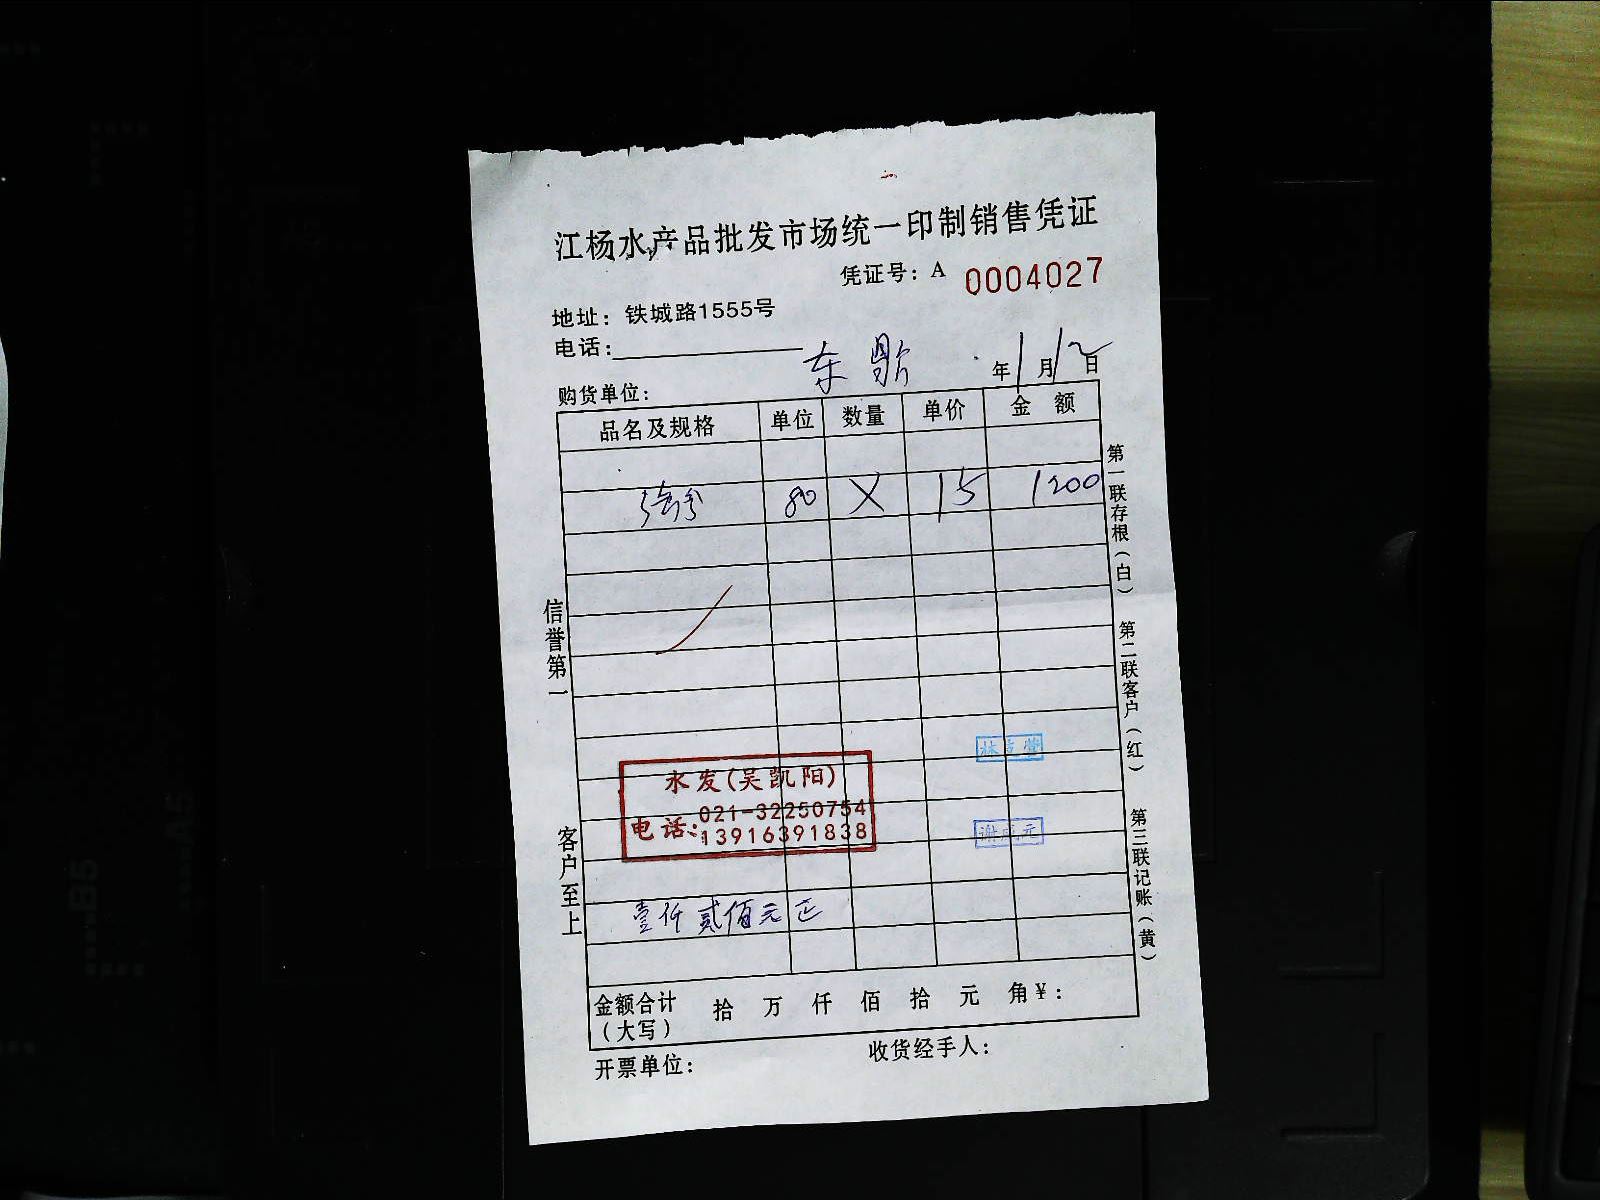 江杨水产品批发市场统一印制销售凭证
凭证号：A 0004027
地址：铁城路1555号
电话：
购货单位： 东 年1月12日
品名及规格 单位 数量 单价 金额
80 X 15 1200
水发(吴凯阳)
电话：021-32250754
13916391838
壹仟贰佰元正
金额合计（大写） 拾 万 仟 佰 拾 元 角￥：
开票单位： 收货经手人：
信誉第一
客户至上
第一联存根（白）
第二联客户（红）
第三联记账（黄）